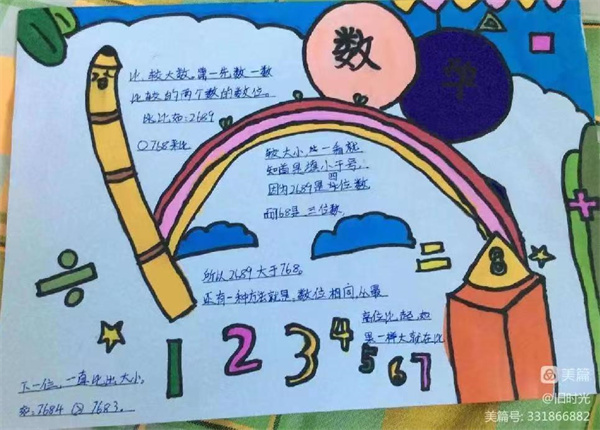 数学
比较大数。第一先数一数
比较的两个数的数位。
比如:2689
○768来比
较大小,比一看就
知道是谁小于号,
因为2689是四位数
而768是三位数,
所以2689大于768。
还有一种方法就是,数位相同从最
高位比起,如
果一样大就在比
下一位,一直比出大小,
如:7684○7683。
1 2 3 4 5 6 7 8
美篇
@旧时光
美篇号: 331866882